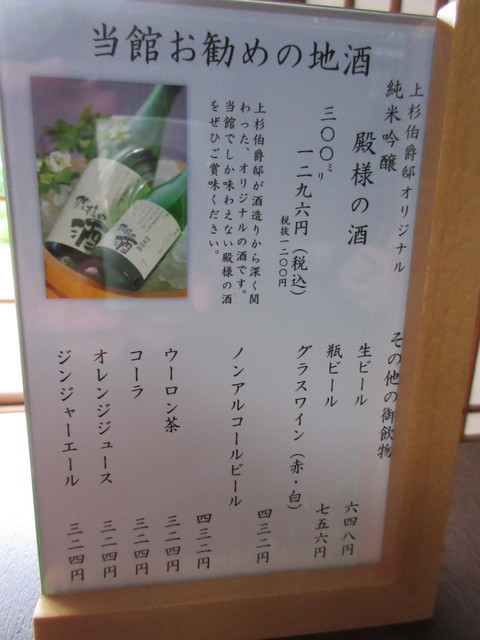 当館お勧めの地酒
上杉伯爵邸オリジナル
純米吟醸
殿様の酒
三〇〇ミリ
一二九六円（税込）
税抜一二〇〇円
上杉伯爵邸が酒造りから深く関
わった、オリジナルの酒です。
当館でしか味わえない殿様の酒
をぜひご賞味ください。
その他の御飲物
生ビール 六四八円
瓶ビール 七五六円
グラスワイン（赤・白） 四三二円
ノンアルコールビール 四三二円
ウーロン茶 三二四円
コーラ 三二四円
オレンジジュース 三二四円
ジンジャーエール 三二四円